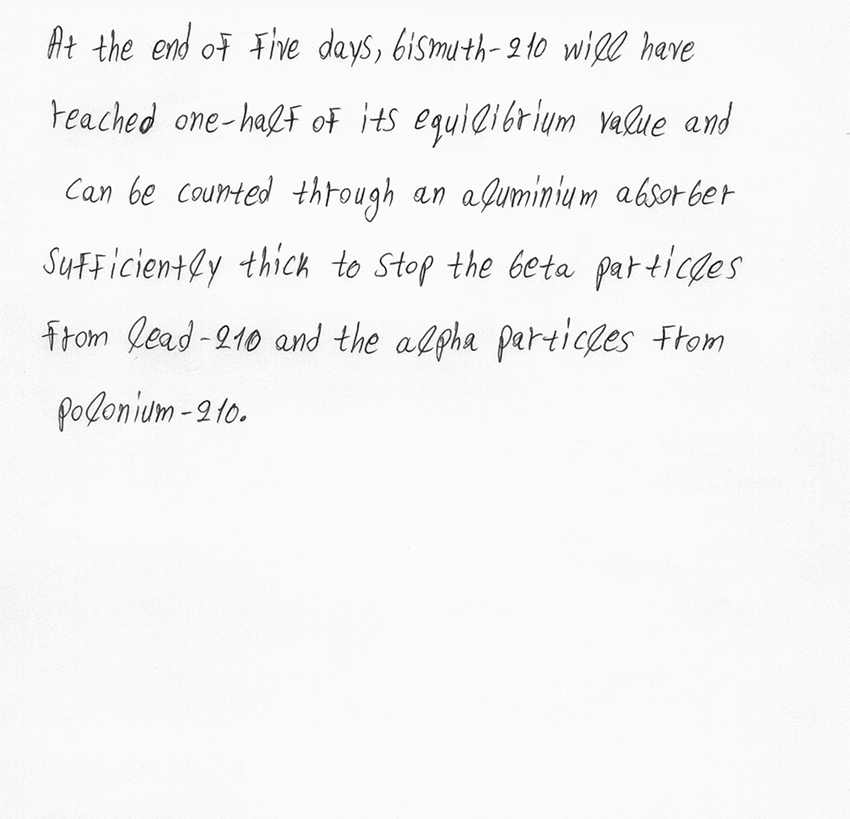 At the end of five days, bismuth-210 will have
reached one-half of its equilibrium value and
can be counted through an aluminium absorber
sufficiently thick to stop the beta particles
from lead-210 and the alpha particles from
polonium-210.